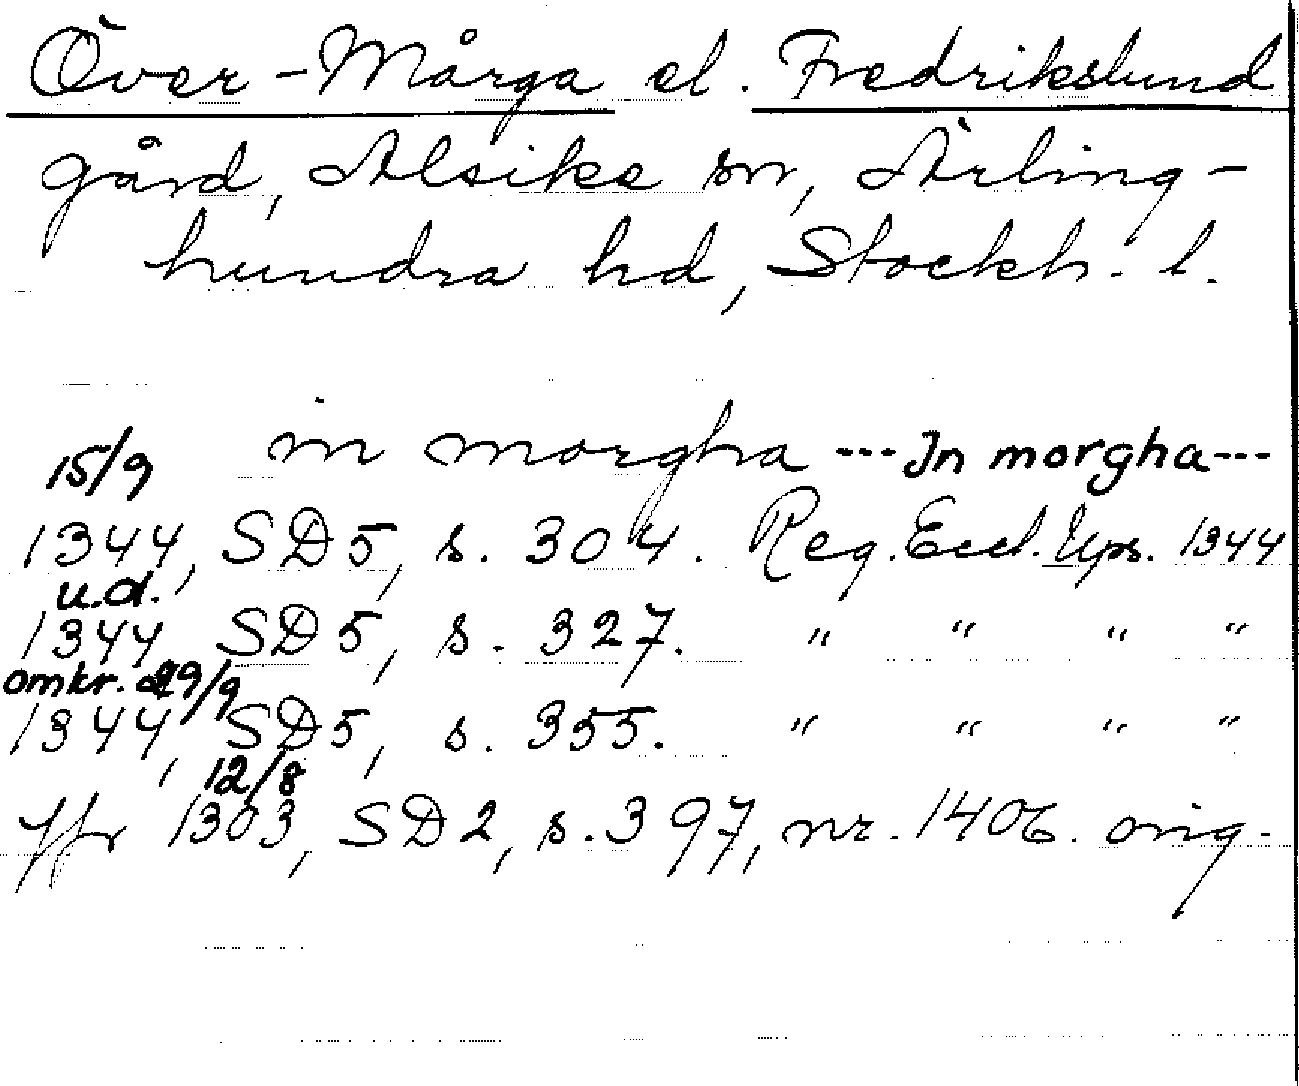 Över-Mårga el. Fredrikslund
gård, Alsike sn, Ärling-
hundra hd, Stockh. l.
in morgha --- In morgha ---
15/9
1344, SD5, s. 304. Reg. Eccl. Ups. 1344
u.d.
1344, SD5, s. 327. " " " "
omkr. 29/9
1344, SD5, s. 355. " " " "
12/8
Jfr 1303, SD2, s. 397, nr. 1406. orig.